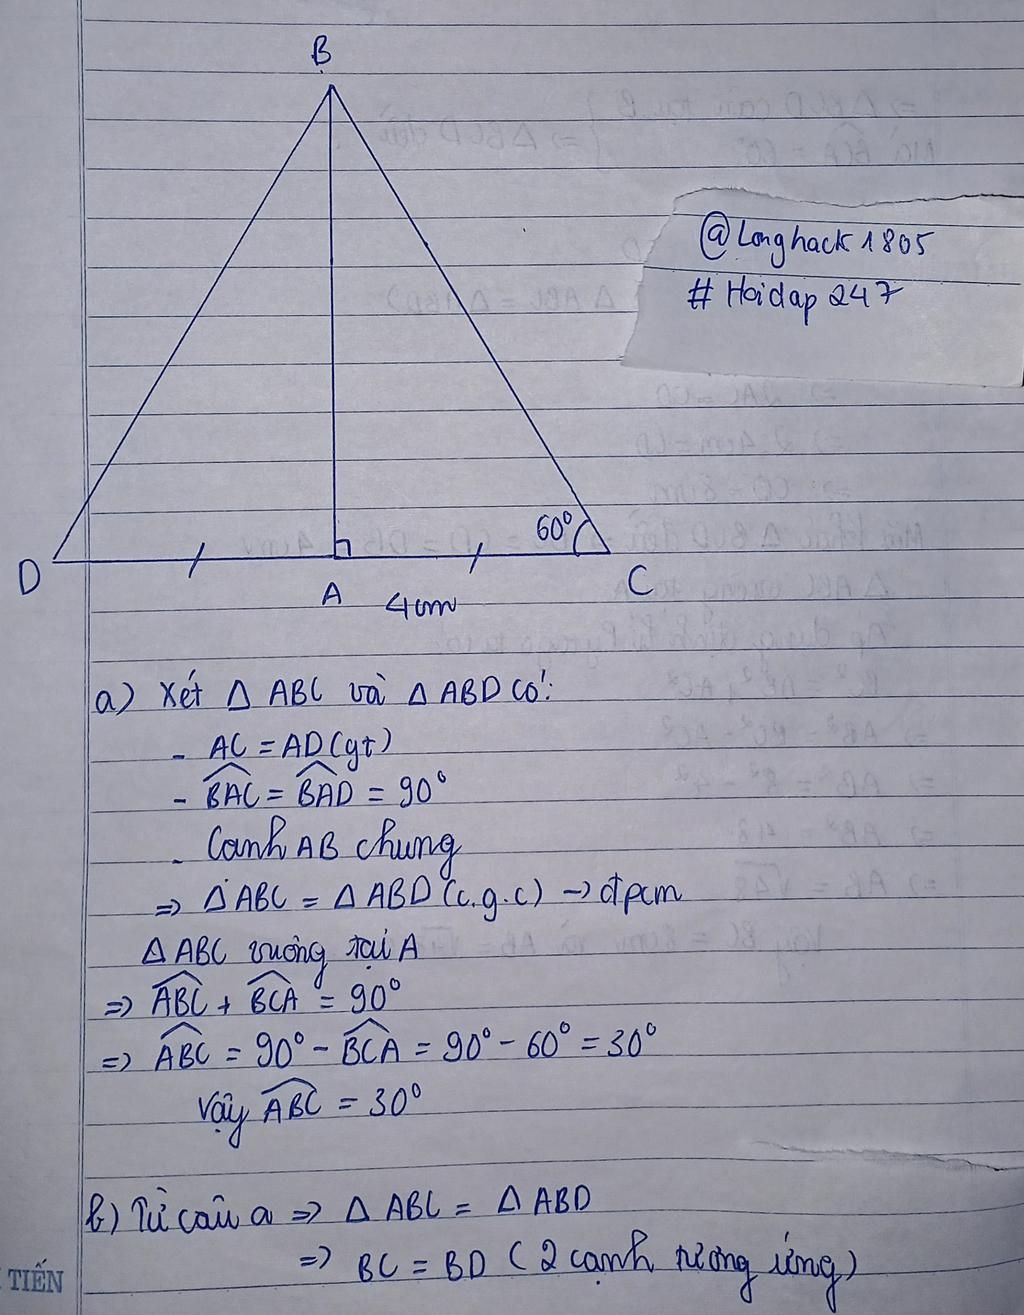 B
@Longhack 1805
# Hoidap 247
60°
D
A
C
4cm
a) Xét Δ ABC và Δ ABD có:
- AC = AD (gt)
- BAC = BAD = 90°
- Cạnh AB chung
=> Δ ABC = Δ ABD (c.g.c) -> đpcm
Δ ABC vuông tại A
=> ABC + BCA = 90°
=> ABC = 90° - BCA = 90° - 60° = 30°
Vậy ABC = 30°
b) Từ câu a => Δ ABC = Δ ABD
=> BC = BD (2 cạnh tương ứng)
TIẾN